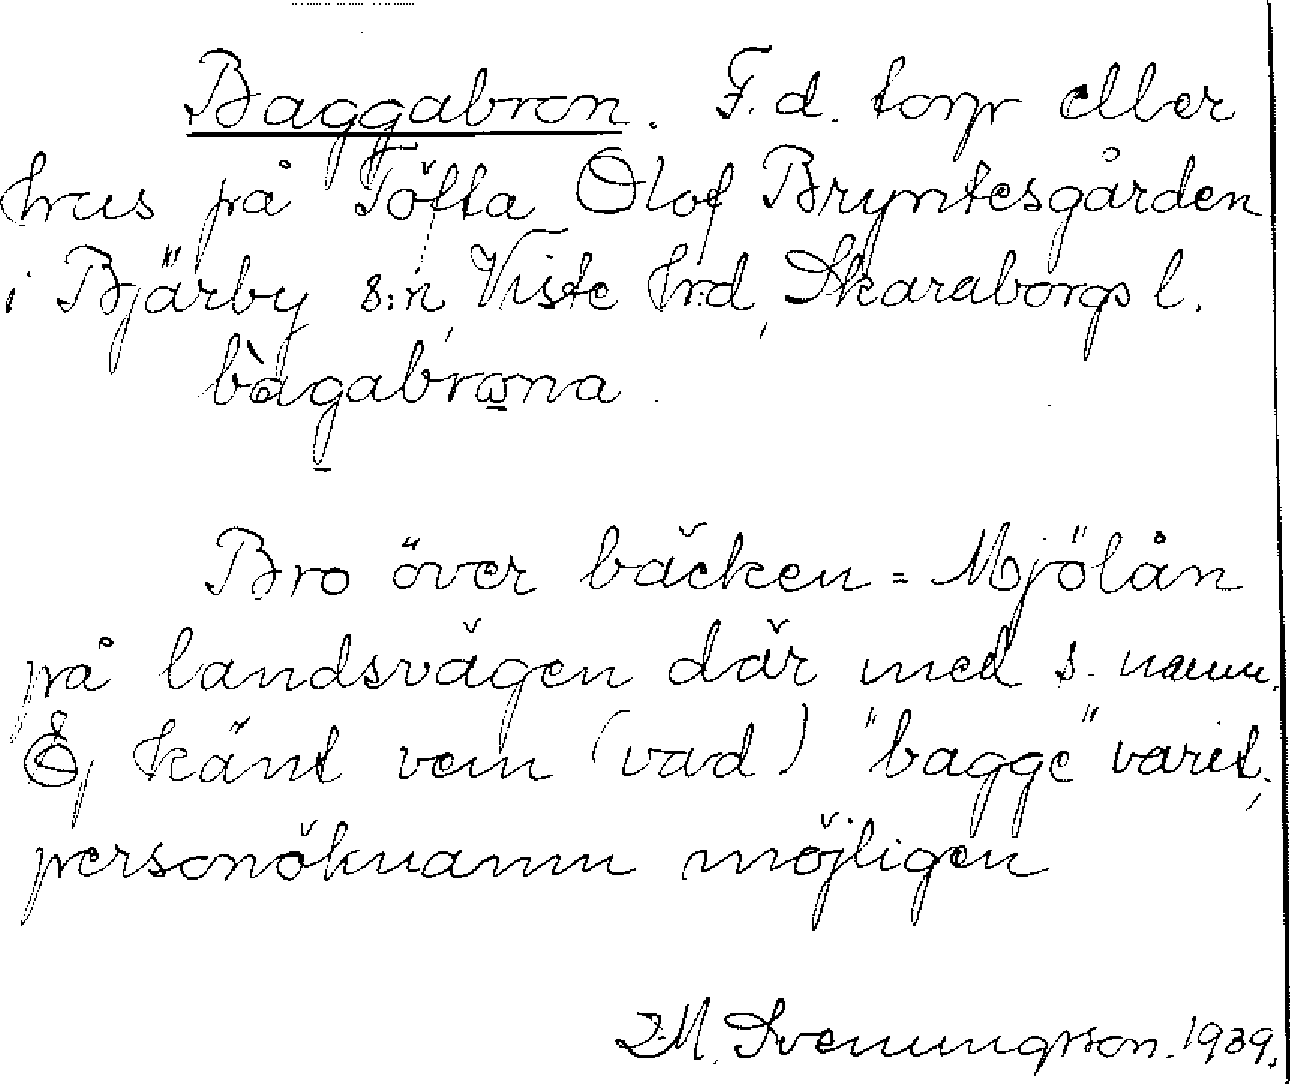 Baggabron. F.d. torp eller
hus på Töfta Olof Bryntesgården
i Bjärby s:n, Viste hrd, Skaraborgs l.
bàgabrωna.
Bro över bäcken = Mjölån
på landsvägen där med s. namn.
Ej känt vem (vad) "bagge" varit,
personöknamn möjligen
Svenungsson. 1939.